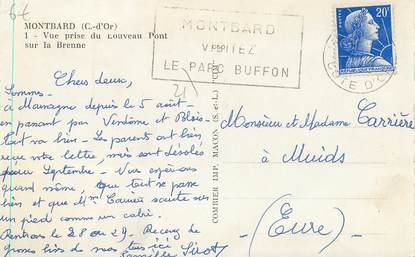 6€
MONTBARD (C.-d'Or)
1 - Vue prise du Nouveau Pont
sur la Brenne
MONTBARD
VISITEZ
LE PARC BUFFON
20F
RÉPUBLIQUE FRANÇAISE
CÔTE D'OR
21
Chers deux,
Sommes
à Marcagne depuis le 5 août -
en passant par Vendôme et Blois.
Tout va bien - Les parents ont bien
reçu votre lettre, mais sont désolés
pour Septembre - Vous espérons
quand même, que tout se passe
bien et que Mme Carrière saute sur
un pied comme un cabri.
Rentrons le 28 ou 29. Recevez de
grosses bises de nous tous ici
Famille Sirot
COMBIER IMP. MACON (S.-et-L.)
Monsieur et Madame Carrière
à Muids
(Eure)